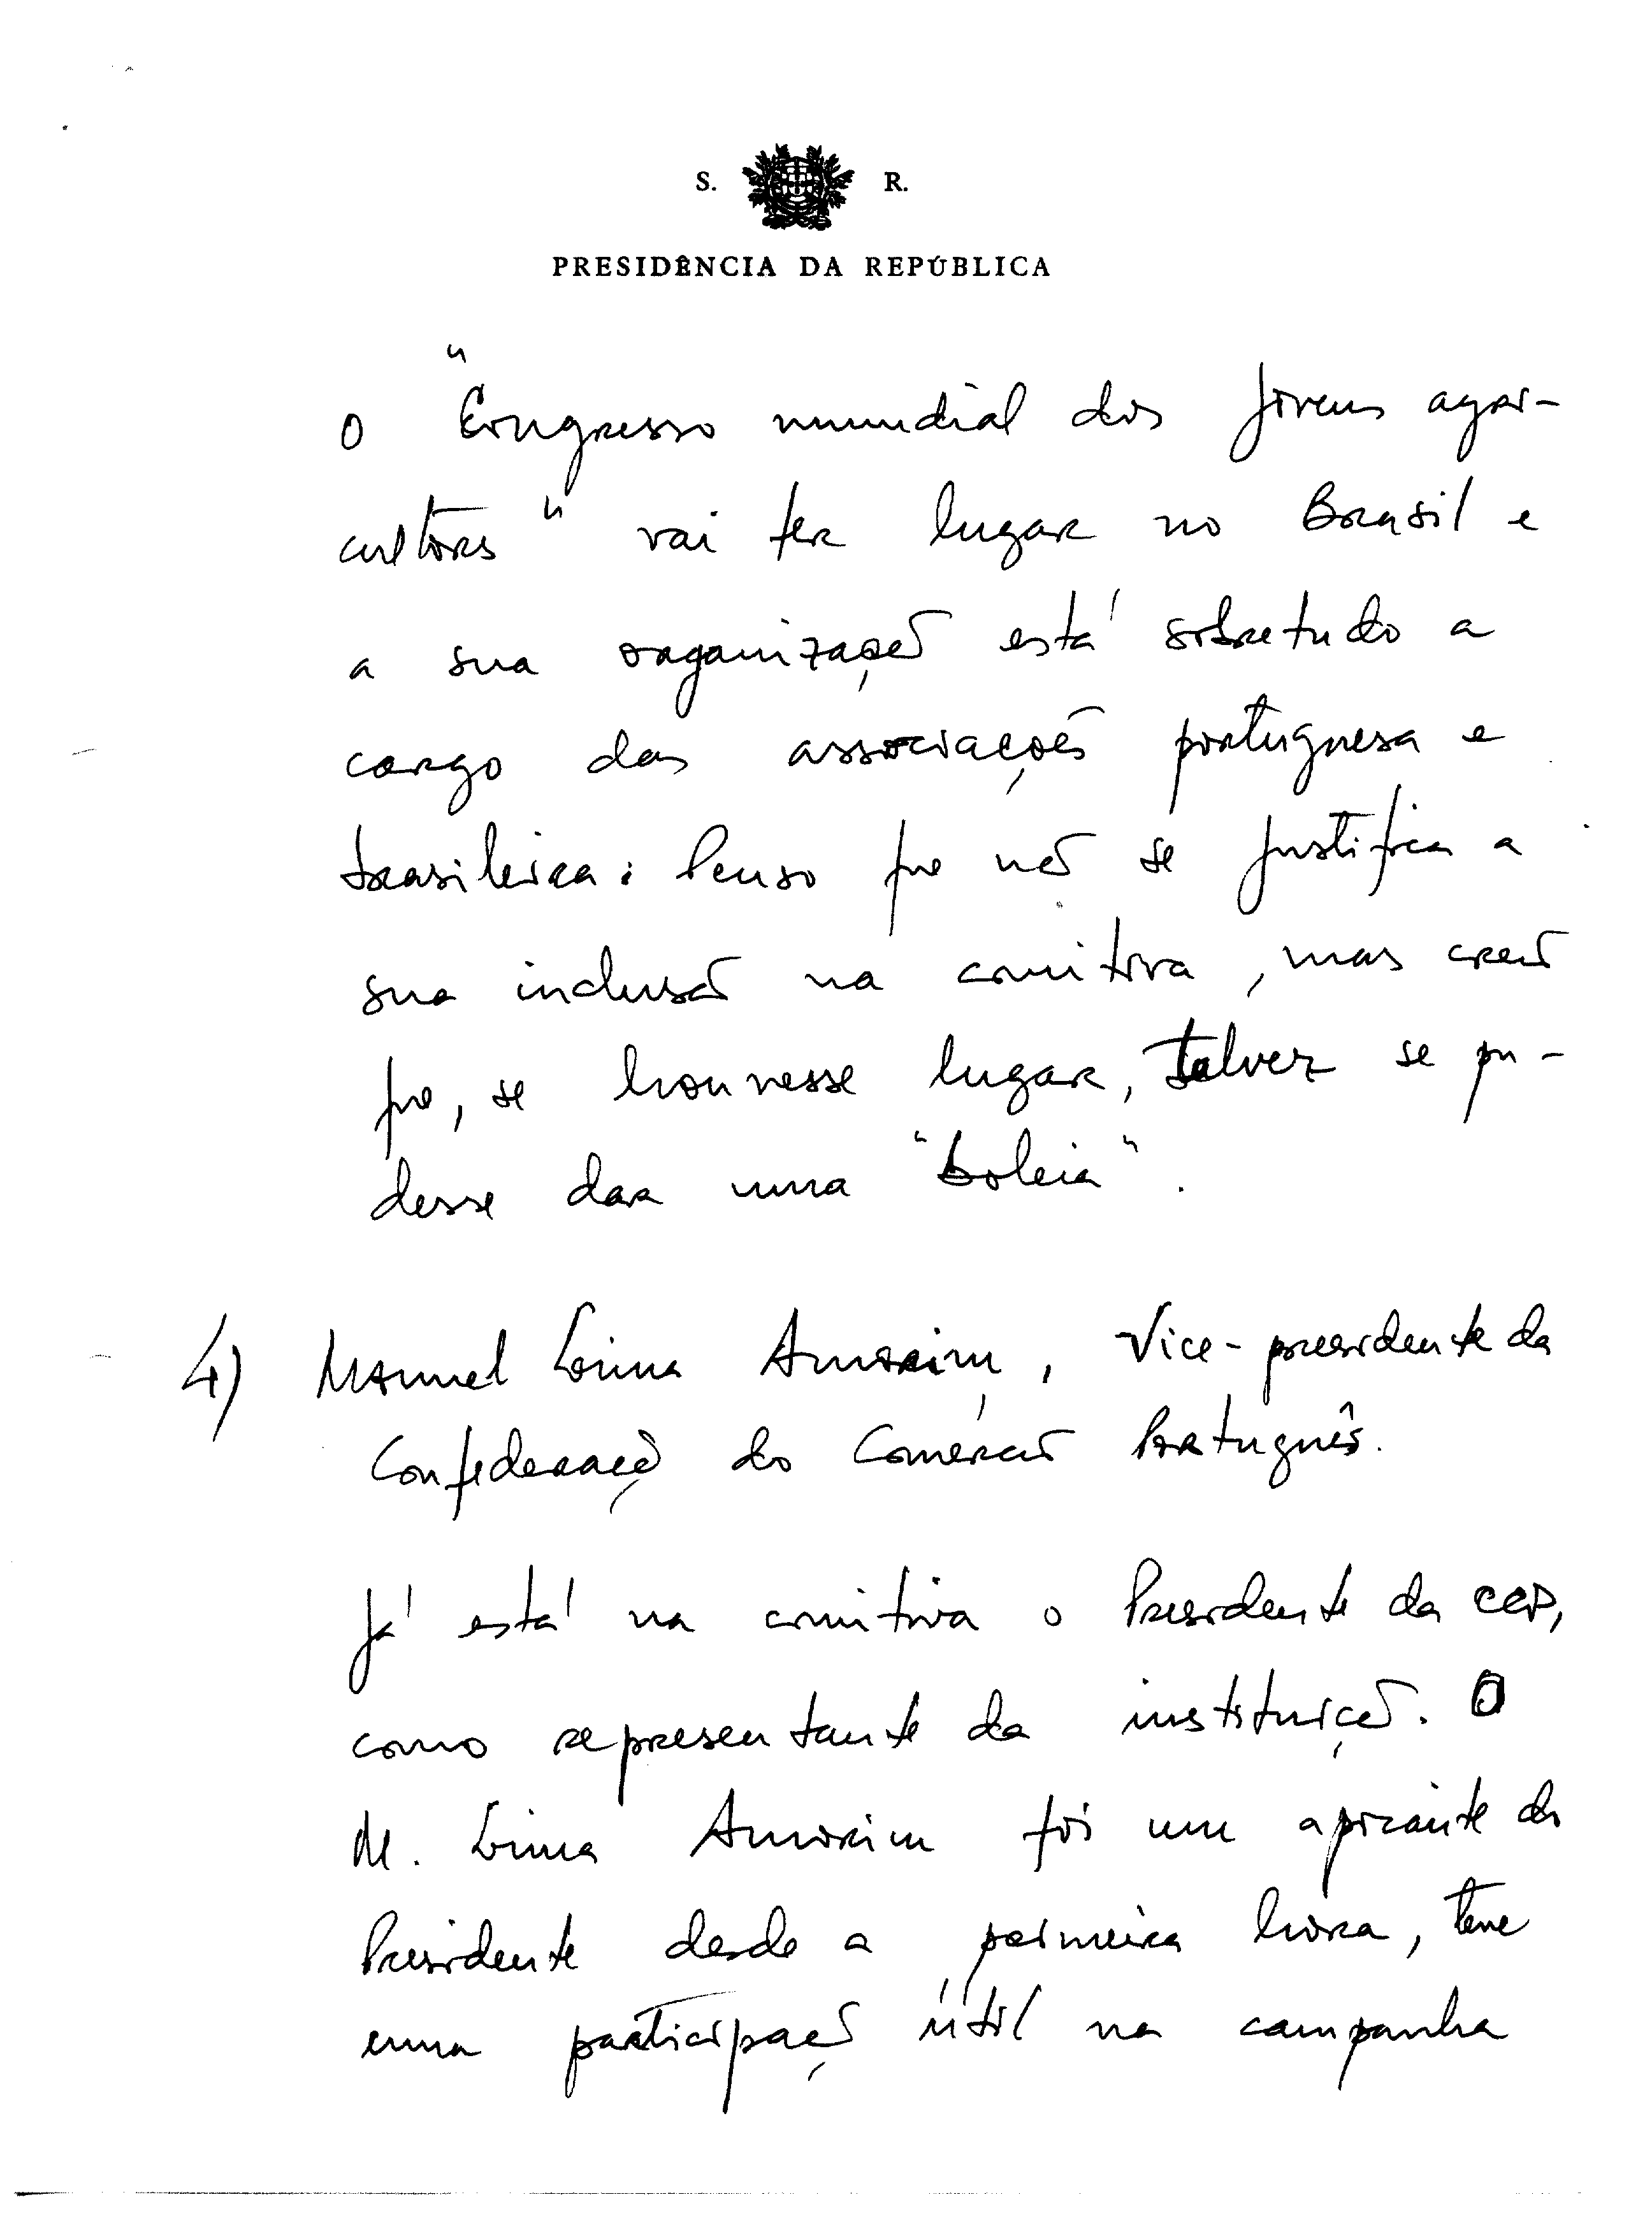 S. R.
PRESIDÊNCIA DA REPÚBLICA
O "Congresso mundial dos Jovens agri-
cultores" vai ter lugar no Brasil e
a sua organização está sobretudo a
cargo das associações portuguesa e
brasileira: Penso que não se justifica a
sua inclusão na comitiva, mas creio
que, se houvesse lugar, talvez se pu-
desse dar uma "boleia".
4) Manuel Lima Amorim, Vice-presidente da
Confederação do Comércio Português.
Já está na comitiva o Presidente da CCP,
como representante da instituição. O
M. Lima Amorim foi um apoiante do
Presidente desde a primeira hora, teve
uma participação útil na campanha